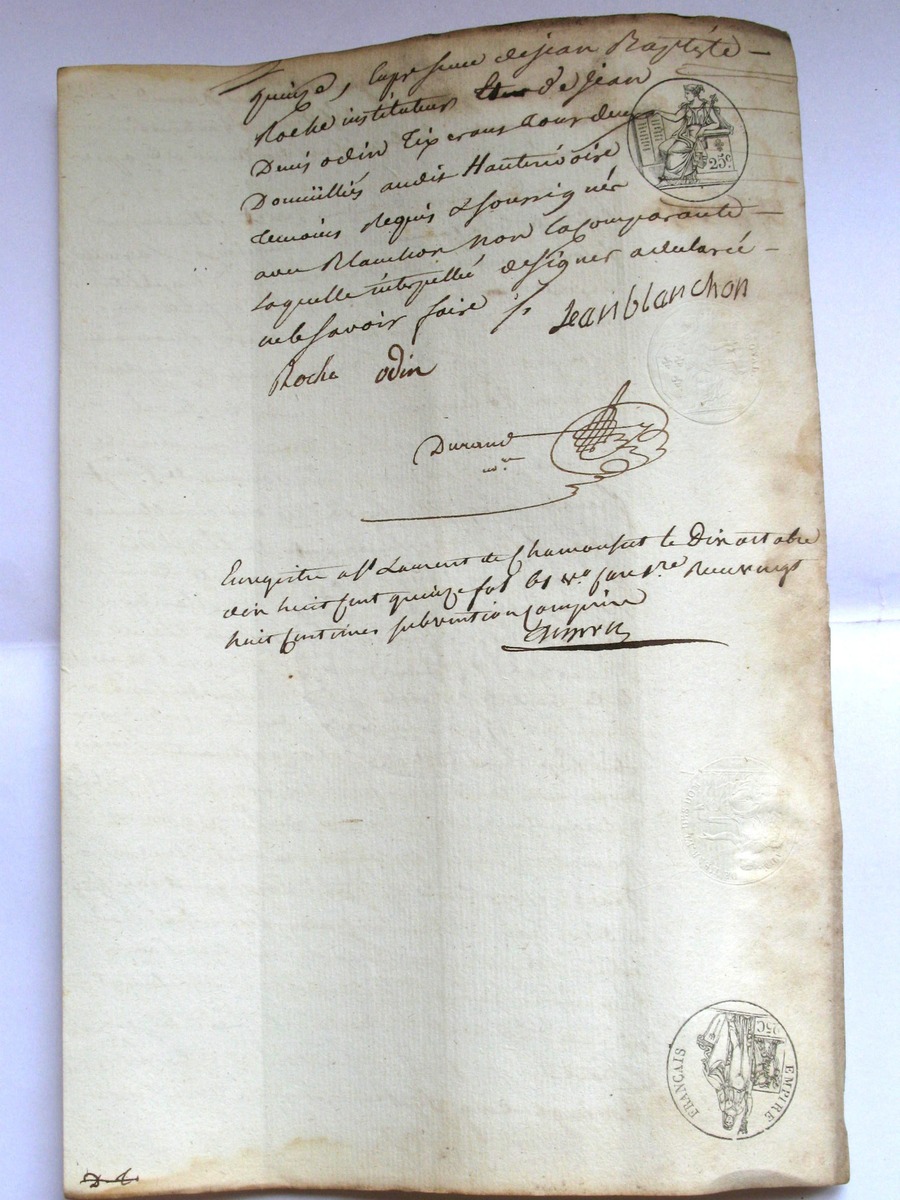 quinze, en presence de jean Baptiste
Roche instituteur et de Jean
Denis odin tixerant tous deux
Domiciliés audit Hauterivoire
temoins requis & soussignés
avec Blanchon non la comparante
laquelle interpellé de signer a declaré
ne le savoir faire ./.
Jean blanchon
Roche odin
Durand
nre
25c.
Enregistré a St Laurent de Chamousset le Dix octobre
dix huit cent quinze fol 61 vo
huit centimes subvention comprise
25C
EMPIRE
FRANCAIS